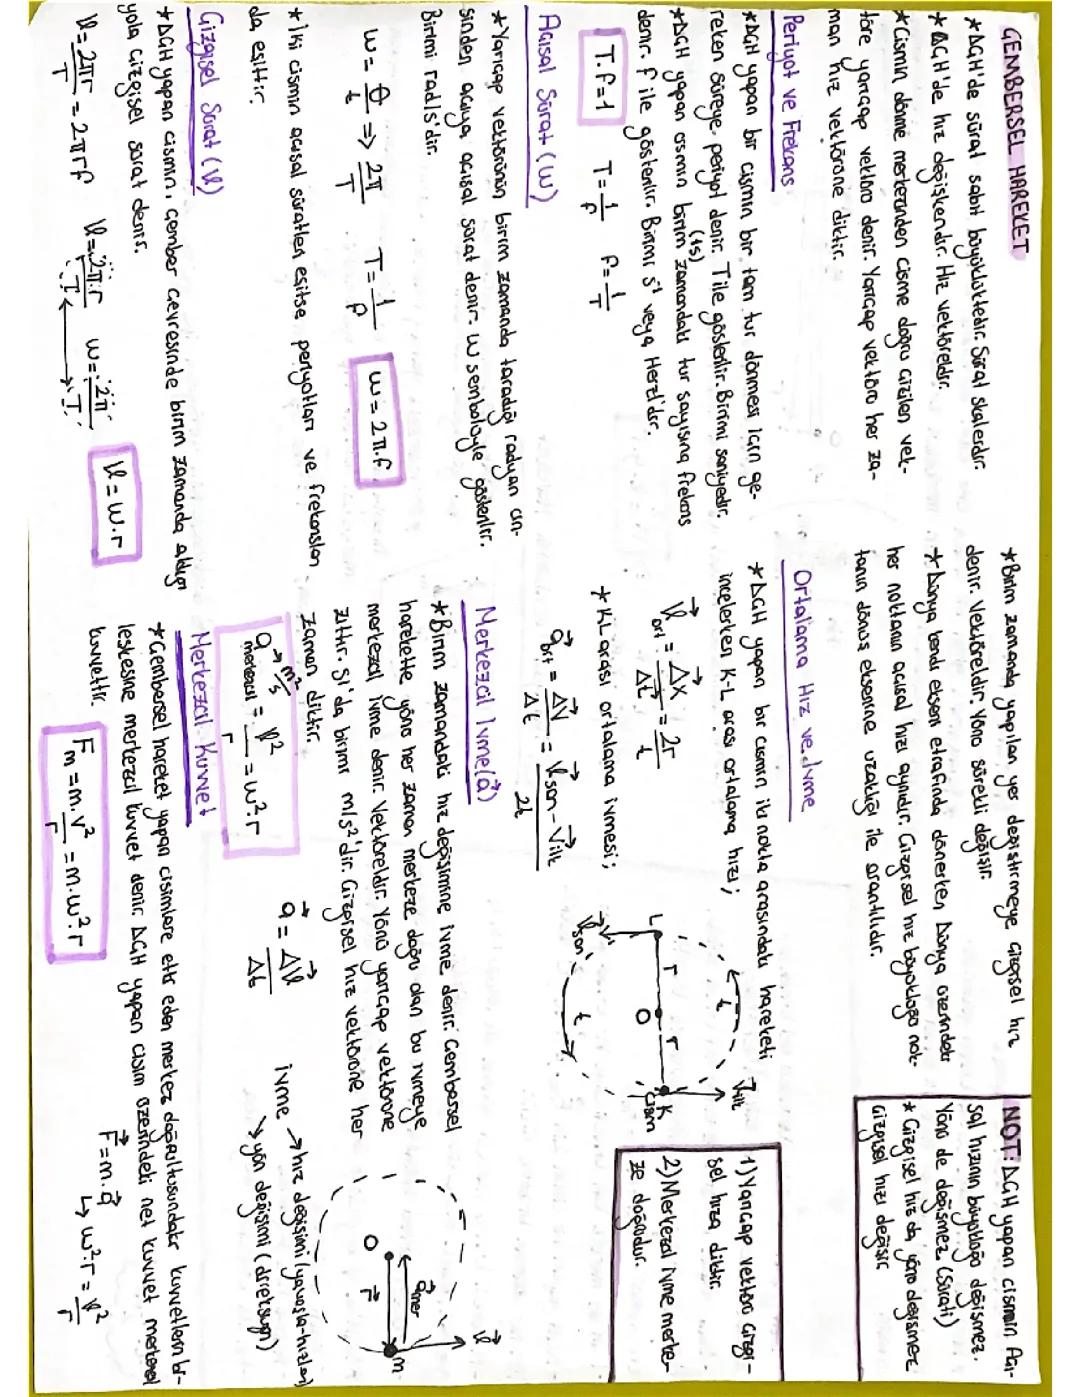 ÇEMBERSEL HAREKET
*DÇH'de sürat sabit büyüklüktedir. Sürat skalerdir.
*DÇH'de hız değişkendir. Hız vektöreldir.
*Cismin dönme merkezinden cisme doğru çizilen vek-
töre yarıçap vektörü denir. Yarıçap vektörü her za-
man hız vektörüne diktir.
Periyot ve Frekans
*DÇH yapan bir cismin bir tam tur dönmesi için ge-
reken süreye periyot denir. T ile gösterilir. Birimi saniyedir.
*DÇH yapan cismin birim (1s) zamandaki tur sayısına frekans
denir. f ile gösterilir. Birimi s⁻¹ veya Herzt'dir.
T.f=1 T=1/f f=1/T
Açısal Sürat (w)
*Yarıçap vektörünün birim zamanda taradığı radyan cin-
sinden açıya açısal sürat denir. w sembolüyle gösterilir.
Birimi rad/s'dir.
w=θ/t => 2π/T T=1/f w=2π.f
*İki cismin açısal süratleri eşitse periyotları ve frekansları
da eşittir.
Çizgisel Sürat (V)
*DÇH yapan cismin, çember çevresinde birim zamanda aldığı
yola çizgisel sürat denir.
V=2πr/T=2πrf V=2π.r/T w=2π/T V=w.r
*Birim zamanda yapılan yer değiştirmeye çizgisel hız
denir. Vektöreldir. Yönü sürekli değişir.
*Dünya kendi ekseni etrafında dönerken Dünya üzerindeki
her noktanın açısal hızı aynıdır. Çizgisel hız büyüklüğü nok-
tanın dönüş eksenine uzaklığı ile orantılıdır.
Ortalama Hız ve İvme
*DÇH yapan bir cismin iki nokta arasındaki hareketi
incelerken K-L arası ortalama hızı;
V⃗ort=Δx⃗/Δt=2r/t
*KL arası ortalama ivmesi;
a⃗ort=ΔV⃗/Δt=V⃗son-V⃗ilk/2t
t
V⃗ilk
L r O r K
cisim
V⃗son
t
Merkezcil İvme(a⃗)
*Birim zamandaki hız değişimine ivme denir. Çembersel
harekette yönü her zaman merkeze doğru olan bu ivmeye
merkezcil ivme denir. Vektöreldir. Yönü yarıçap vektörüne
zıttır. SI'da birimi m/s²'dir. Çizgisel hız vektörüne her
zaman diktir.
a merkezcil=V²/r=w².r
a⃗=ΔV⃗/Δt
ivme → hız değişimi (yavaşla-hızlan)
→ yön değişimi (direksiyon)
O r⃗ m
a⃗mer
V⃗
Merkezcil Kuvvet
*Çembersel hareket yapan cisimlere etki eden merkez doğrultusundaki kuvvetlerin bi-
leşkesine merkezcil kuvvet denir. DÇH yapan cisim üzerindeki net kuvvet merkezcil
kuvvettir.
Fm=m.v²/r=m.w².r
F⃗=m.a⃗
↳ w².r=V²/r
NOT: DÇH yapan cismin Açı-
sal hızının büyüklüğü değişmez.
Yönü de değişmez (sürati)
*Çizgisel hız da, yönü değişmez
Çizgisel hızı değişir
1) Yarıçap vektörü çizgi-
sel hıza diktir.
2) Merkezcil ivme merke-
ze doğrudur.